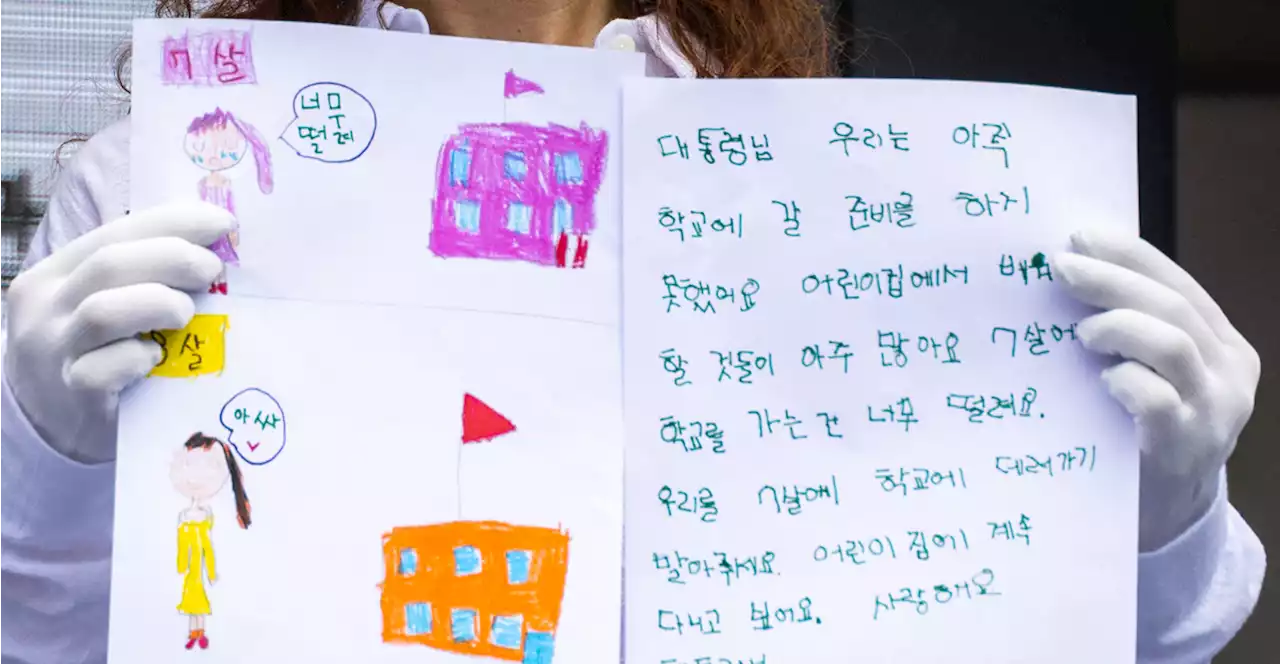 7살
너무
떨려
8살
아싸
대통령님 우리는 아직
학교에 갈 준비를 하지
못했어요 어린이집에서 배워
할 것들이 아주 많아요 7살에
학교를 가는건 너무 떨려요.
우리를 7살에 학교에 데려가지
말아주세요. 어린이집에 계속
다니고 싶어요. 사랑해요